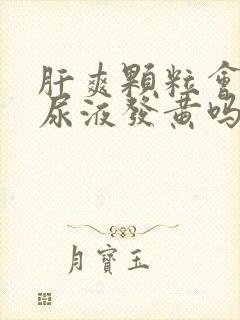 肝爽顆粒會
尿液發黃嗎
月寶玉